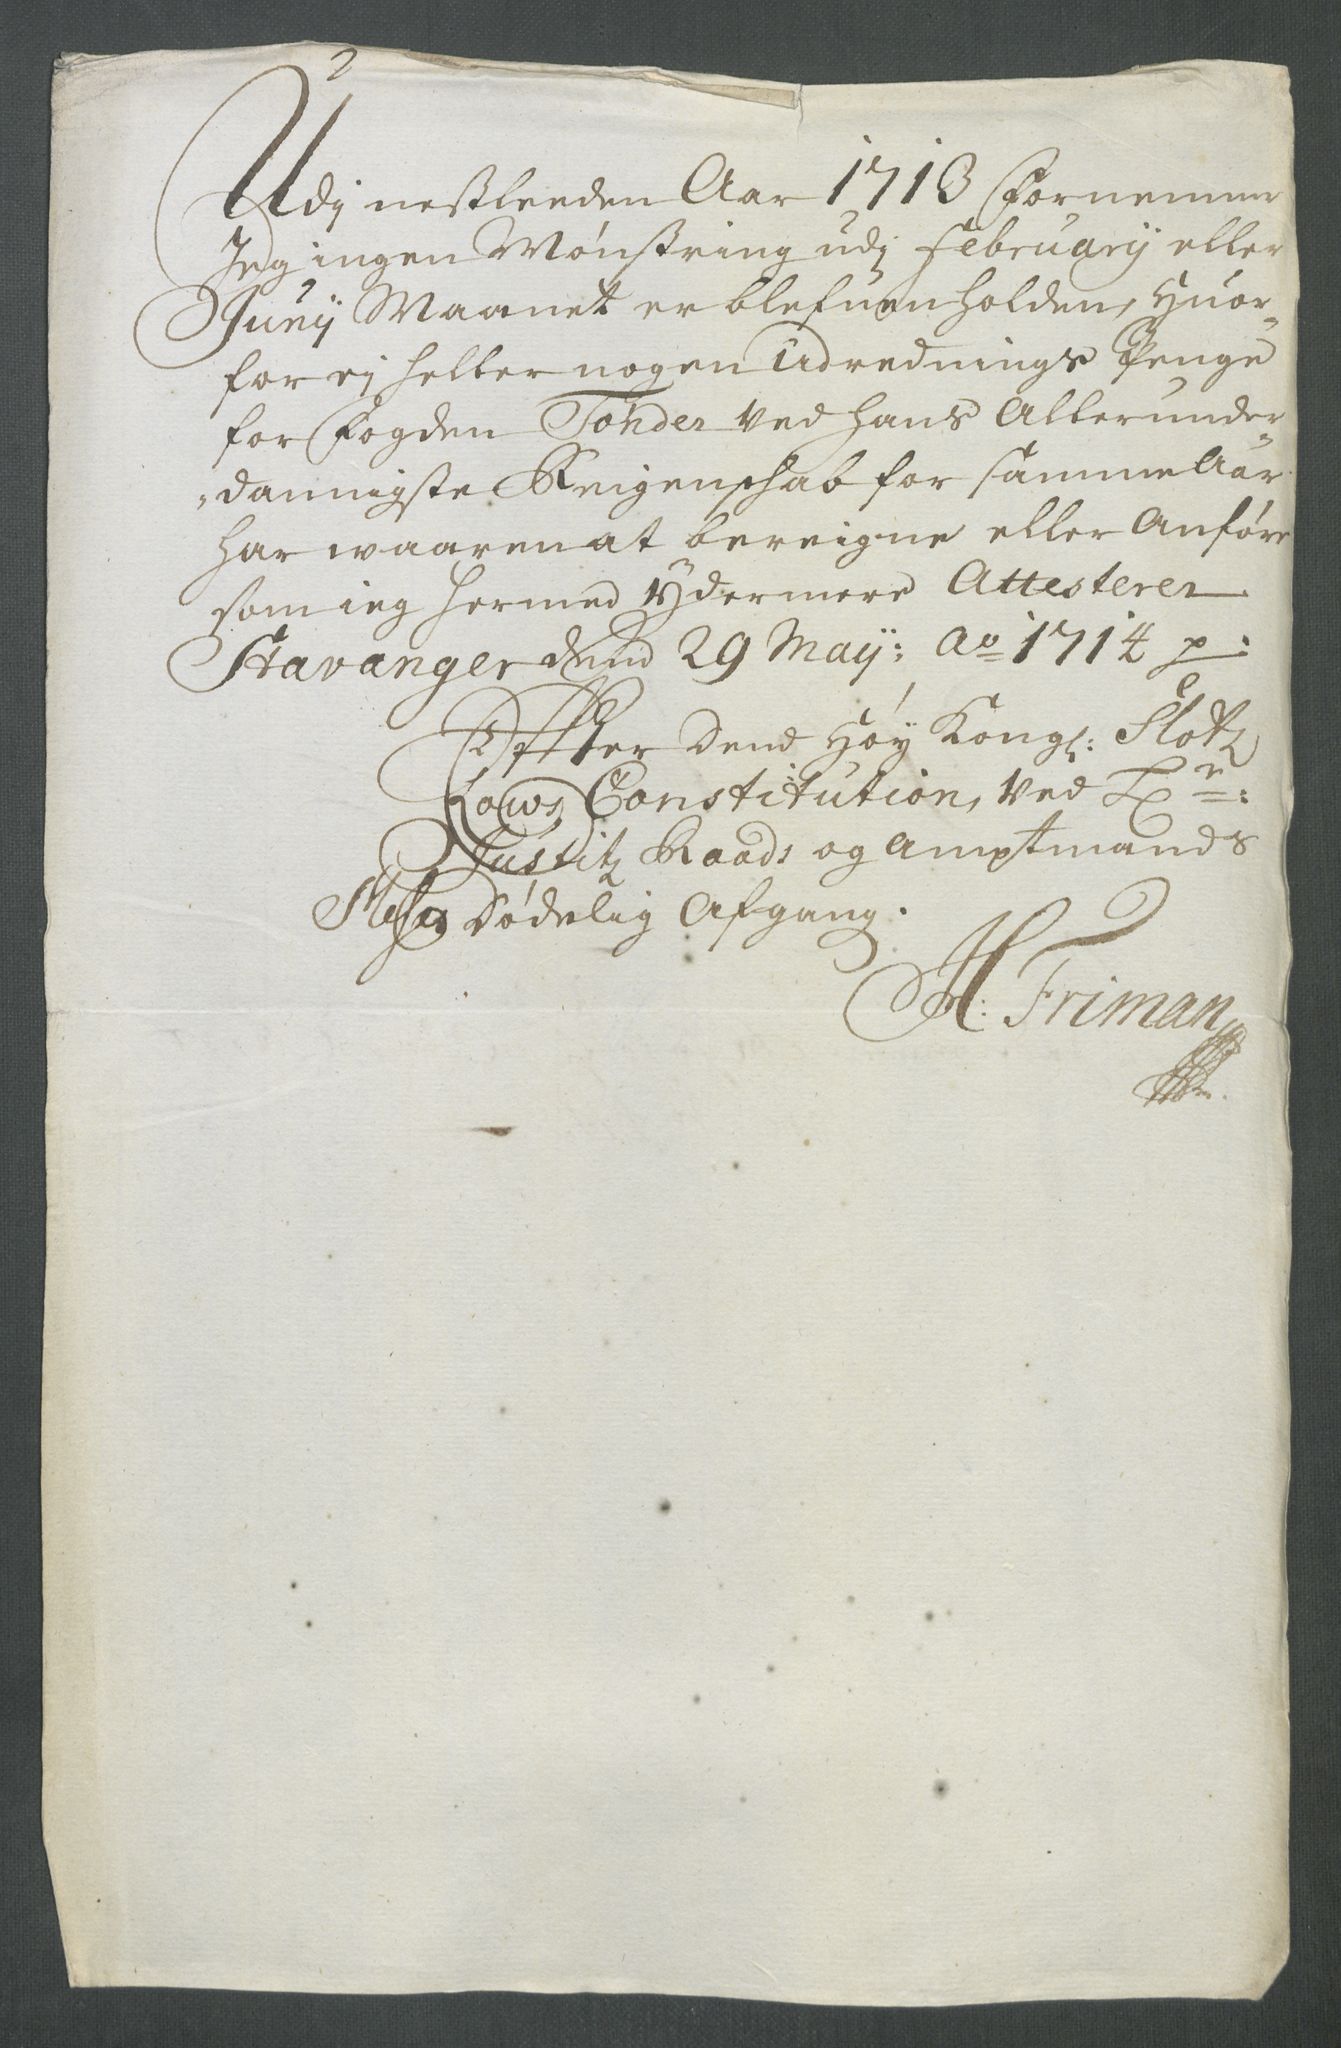 2
Udj nestleeden Aar 1713 Fornemmer
Jeg ingen Mønstring udj February eller
Junij Maanet er blefuen holden, Huor-
for ej heller nogen Udrednings Penge
for Fogden Tønder ved hans Allerunder
dannigste Reigenschab for samme Aar
har waaren at bereigne eller Anføre
som ieg hermed Ydermere Attesterer
Stavanger dend 29 Maij: Ao 1714 p:
Effter dend Høy Kongl: Slotz
Lows Constitution, ved
Justitz Raads og Amptmands
dødelig Afgang.
H: Friman